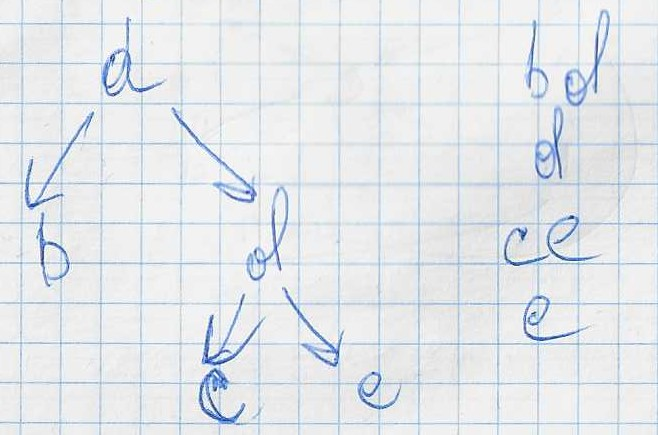 d
b d
c e
b d
d
c e
e